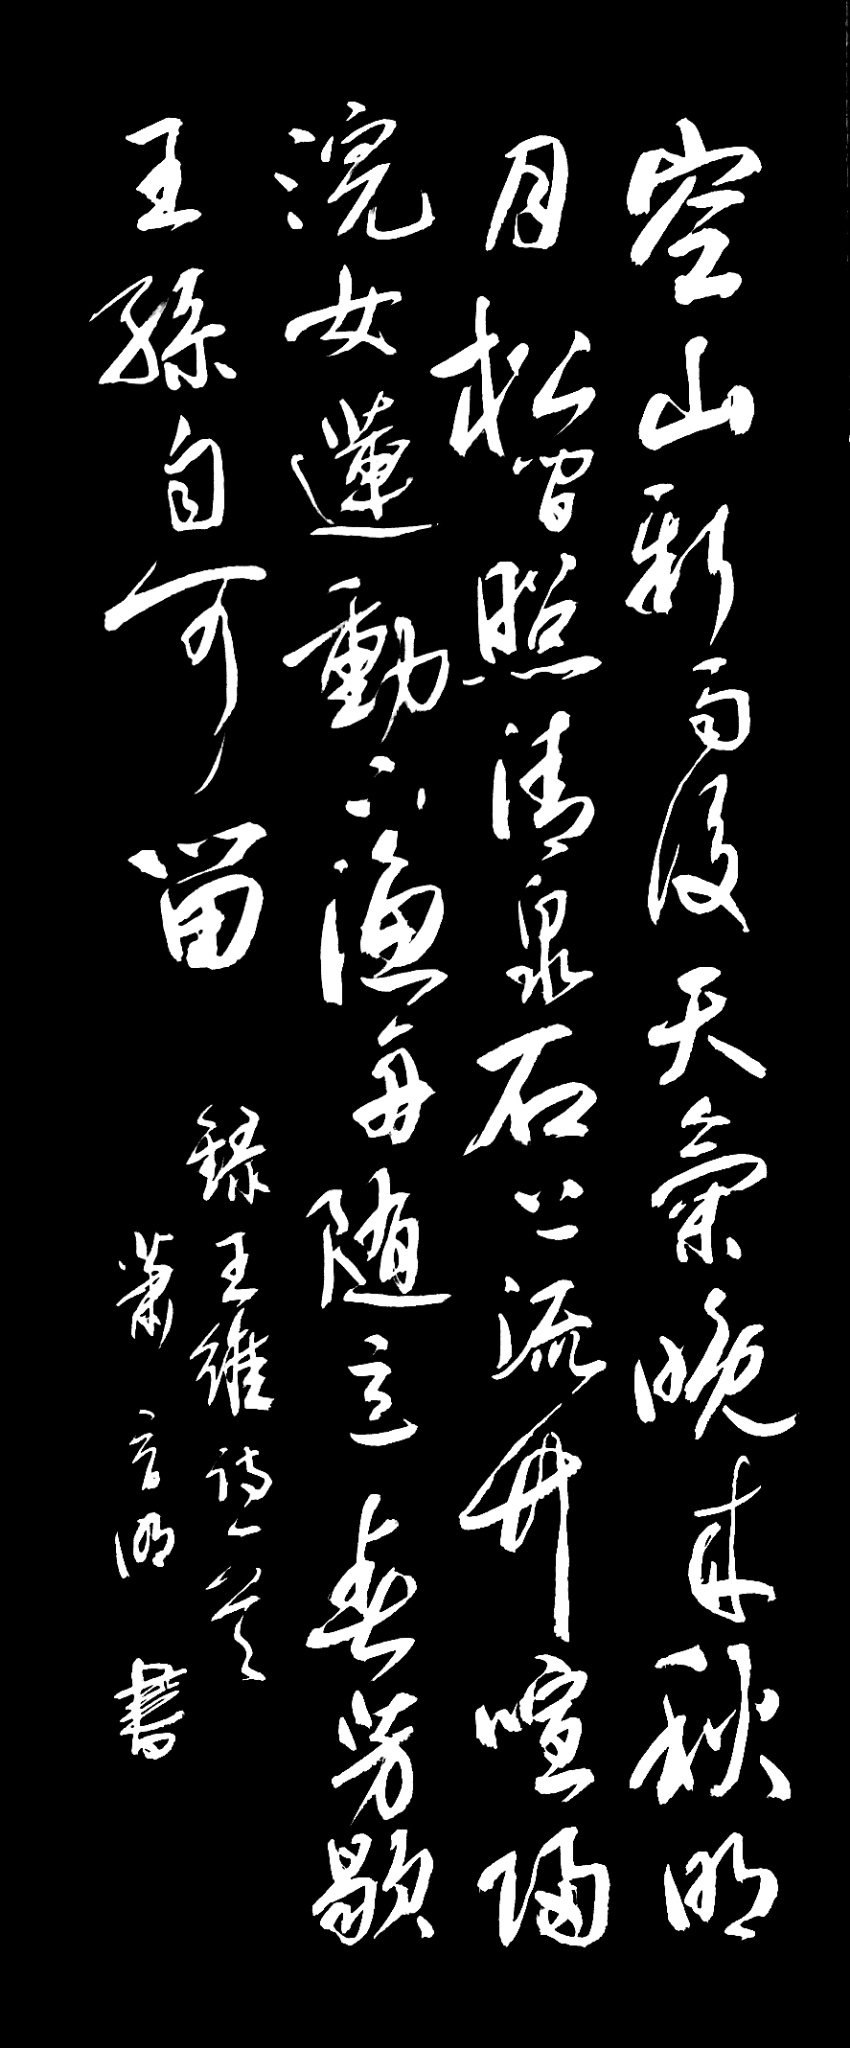 空山新雨後天氣晚来秋明
月松間照清泉石上流竹喧歸
浣女蓮動下漁舟随意春芳歇
王孫自可留
録王維詩一首
蕭 明 書